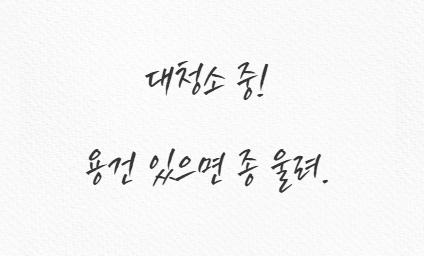 대청소 중!
용건 있으면 종 울려.